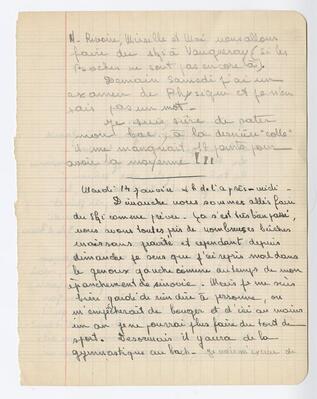 H. Rivoire, Mireille et Moi nous allons
faire du ski à Vaugneray (si les
Boches ne sont pas encore là).
Demain Samedi j'ai un
examen de Physique et je n'en
sais pas un mot.
Je suis sûre de rater
mon bac, à la dernière "colle"
il me manquait 18 points pour
avoir la moyenne !!!
Mardi 14 janvier 4h de l'après-midi -
Dimanche nous sommes allés faire
du ski comme prévu. Ça s'est très bien passé,
nous avons toutes pris de nombreuses bûches
mais sans gravité et cependant depuis
dimanche je sens que j'ai repris mal dans
le genoux gauche comme au temps de mon
épanchement de sinovie. Mais je me suis
bien gardé de rien dire à personne, on
m'empêcherait de bouger et d'ici au moins
un an je ne pourrai plus faire du tout de
sport. Désormais il y aura de la
gymnastique au bach.